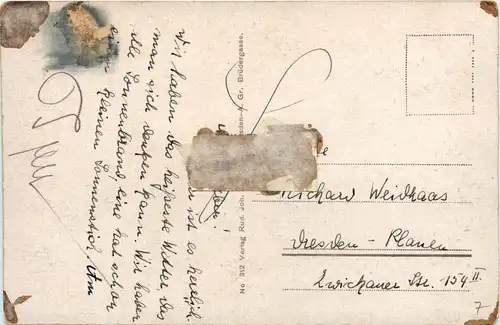 Wir haben das heißeste Wetter das
man sich denken kann. Wir haben
alle Sonnenbrand, eine hat schon
einen kleinen Sonnenstich. Am
ist es herrlich
No 212 Verlag Rud. Joh.
Gr. Brüdergasse.
Richard Weidhaas
Dresden - Plauen
Zwickauer Str. 154 II.
7